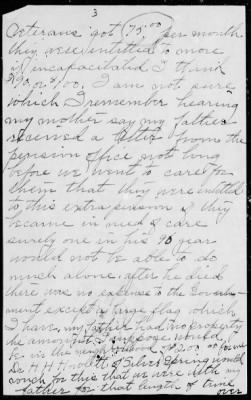 3
Veterans got 75.00 per month
they were entitled to more
if incapacitated I think
$90 or $100, I am not sure
which I remember hearing
my mother say my father
received a letter from the
pension office not long
before we went to care for
them that they were entitled
to this extra pension if they
became in need of care
surely one in his 90 year
would not be able to do
much alone, after he died
there was no expense to the Govern-
ment except a large flag which
I have, my father had no property
he amongst I suppose would
be in the neighborhood of
Dr. H H Howlett of Silver Spring would
vouch for this that we were with my
father for that length of time
over